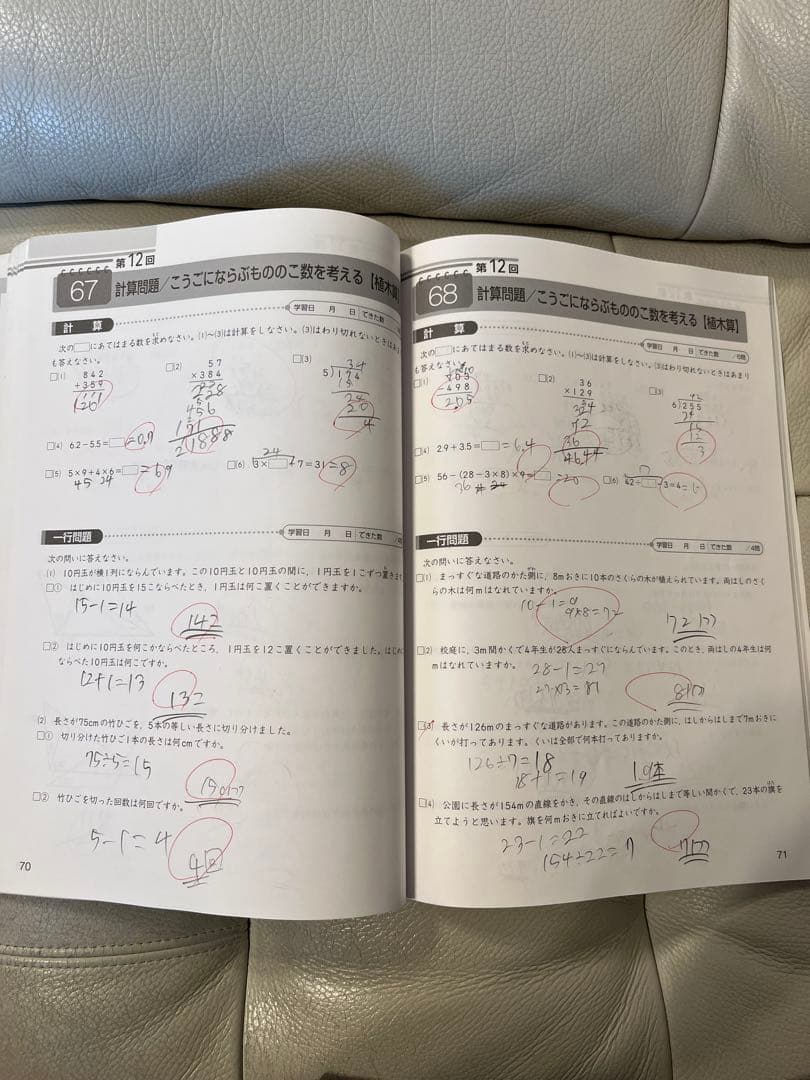 第12回
67 計算問題/こうごにならぶもののこ数を考える【植木算】
計算
学習日 月 日 できた数
次の□にあてはまる数を求めなさい。(1)~(3)は計算をしなさい。(3)はわり切れないときはあまり
も答えなさい。
□(1) 842
+359
1201
□(2) 57
×384
228
456
171
21888
□(3) 34
5)174
15
24
20
4
□(4) 6.2-5.5=□=0.7
□(5) 5×9+4×6=□=69
45 24
□(6) 3×□+7=31=8
24
一行問題
学習日 月 日 できた数 /4問
次の問いに答えなさい。
(1) 10円玉が横1列にならんでいます。この10円玉と10円玉の間に、1円玉を1こずつ置きます
□① はじめに10円玉を15こならべたとき、1円玉は何こ置くことができますか。
15-1=14
14こ
□② はじめに10円玉を何こかならべたところ、1円玉を12こ置くことができました。はじめに
ならべた10円玉は何こですか。
12+1=13
13こ
(2) 長さが75cmの竹ひごを、5本の等しい長さに切り分けました。
□① 切り分けた竹ひご1本の長さは何cmですか。
75÷5=15
15cm
□② 竹ひごを切った回数は何回ですか。
5-1=4
4回
70
第12回
68 計算問題/こうごにならぶもののこ数を考える【植木算】
計算
学習日 月 日 できた数 /6問
次の□にあてはまる数を求めなさい。(1)~(3)は計算をしなさい。(3)はわり切れないときはあまり
も答えなさい。
□(1) 703
498
205
□(2) 36
×129
324
72
36
4644
□(3) 42
6)255
24
15
12
3
□(4) 2.9+3.5=□=6.4
□(5) 56-(28-3×8)×9=□=20
36 24
□(6) 42÷□-3=4=
7
一行問題
学習日 月 日 できた数 /4問
次の問いに答えなさい。
□(1) まっすぐな道路のかた側に、8mおきに10本のさくらの木が植えられています。両はしのさく
らの木は何mはなれていますか。
10-1=9
9×8=72
72m
□(2) 校庭に、3m間かくで4年生が28人まっすぐにならんでいます。このとき、両はしの4年生は何
mはなれていますか。
28-1=27
27×3=81
81m
□(3) 長さが126mのまっすぐな道路があります。この道路のかた側に、はしからはしまで7mおきに
くいが打ってあります。くいは全部で何本打ってありますか。
126÷7=18
18+1=19
19本
□(4) 公園に長さが154mの直線をかき、その直線のはしからはしまで等しい間かくで、23本の旗を
立てようと思います。旗を何mおきに立てればよいですか。
23-1=22
154÷22=7
7m
71